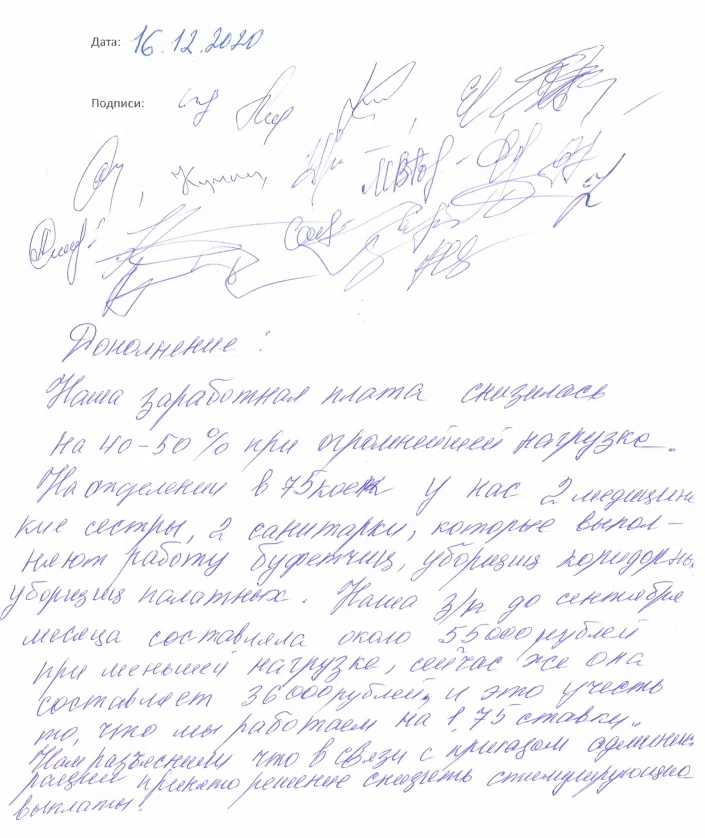 Дата: 16.12.2020
Подписи:
Дополнение:
Наша заработная плата снизилась
на 40-50% при огромнейшей нагрузке.
На отделении в 75 коек у нас 2 медицинс
кие сестры, 2 санитарки, которые выпол-
няют работу буфетчиц, уборщиц коридорных
уборщиц палатных. Наша з/п до сентября
месяца составляла около 55000 рублей
при меньшей нагрузке, сейчас же она
составляет 36000 рублей, и это учесть
то, что мы работаем на 1,75 ставку.
Нам разъяснили что в связи с приказом админис
рации принято решение снизить стимулирующие
выплаты!